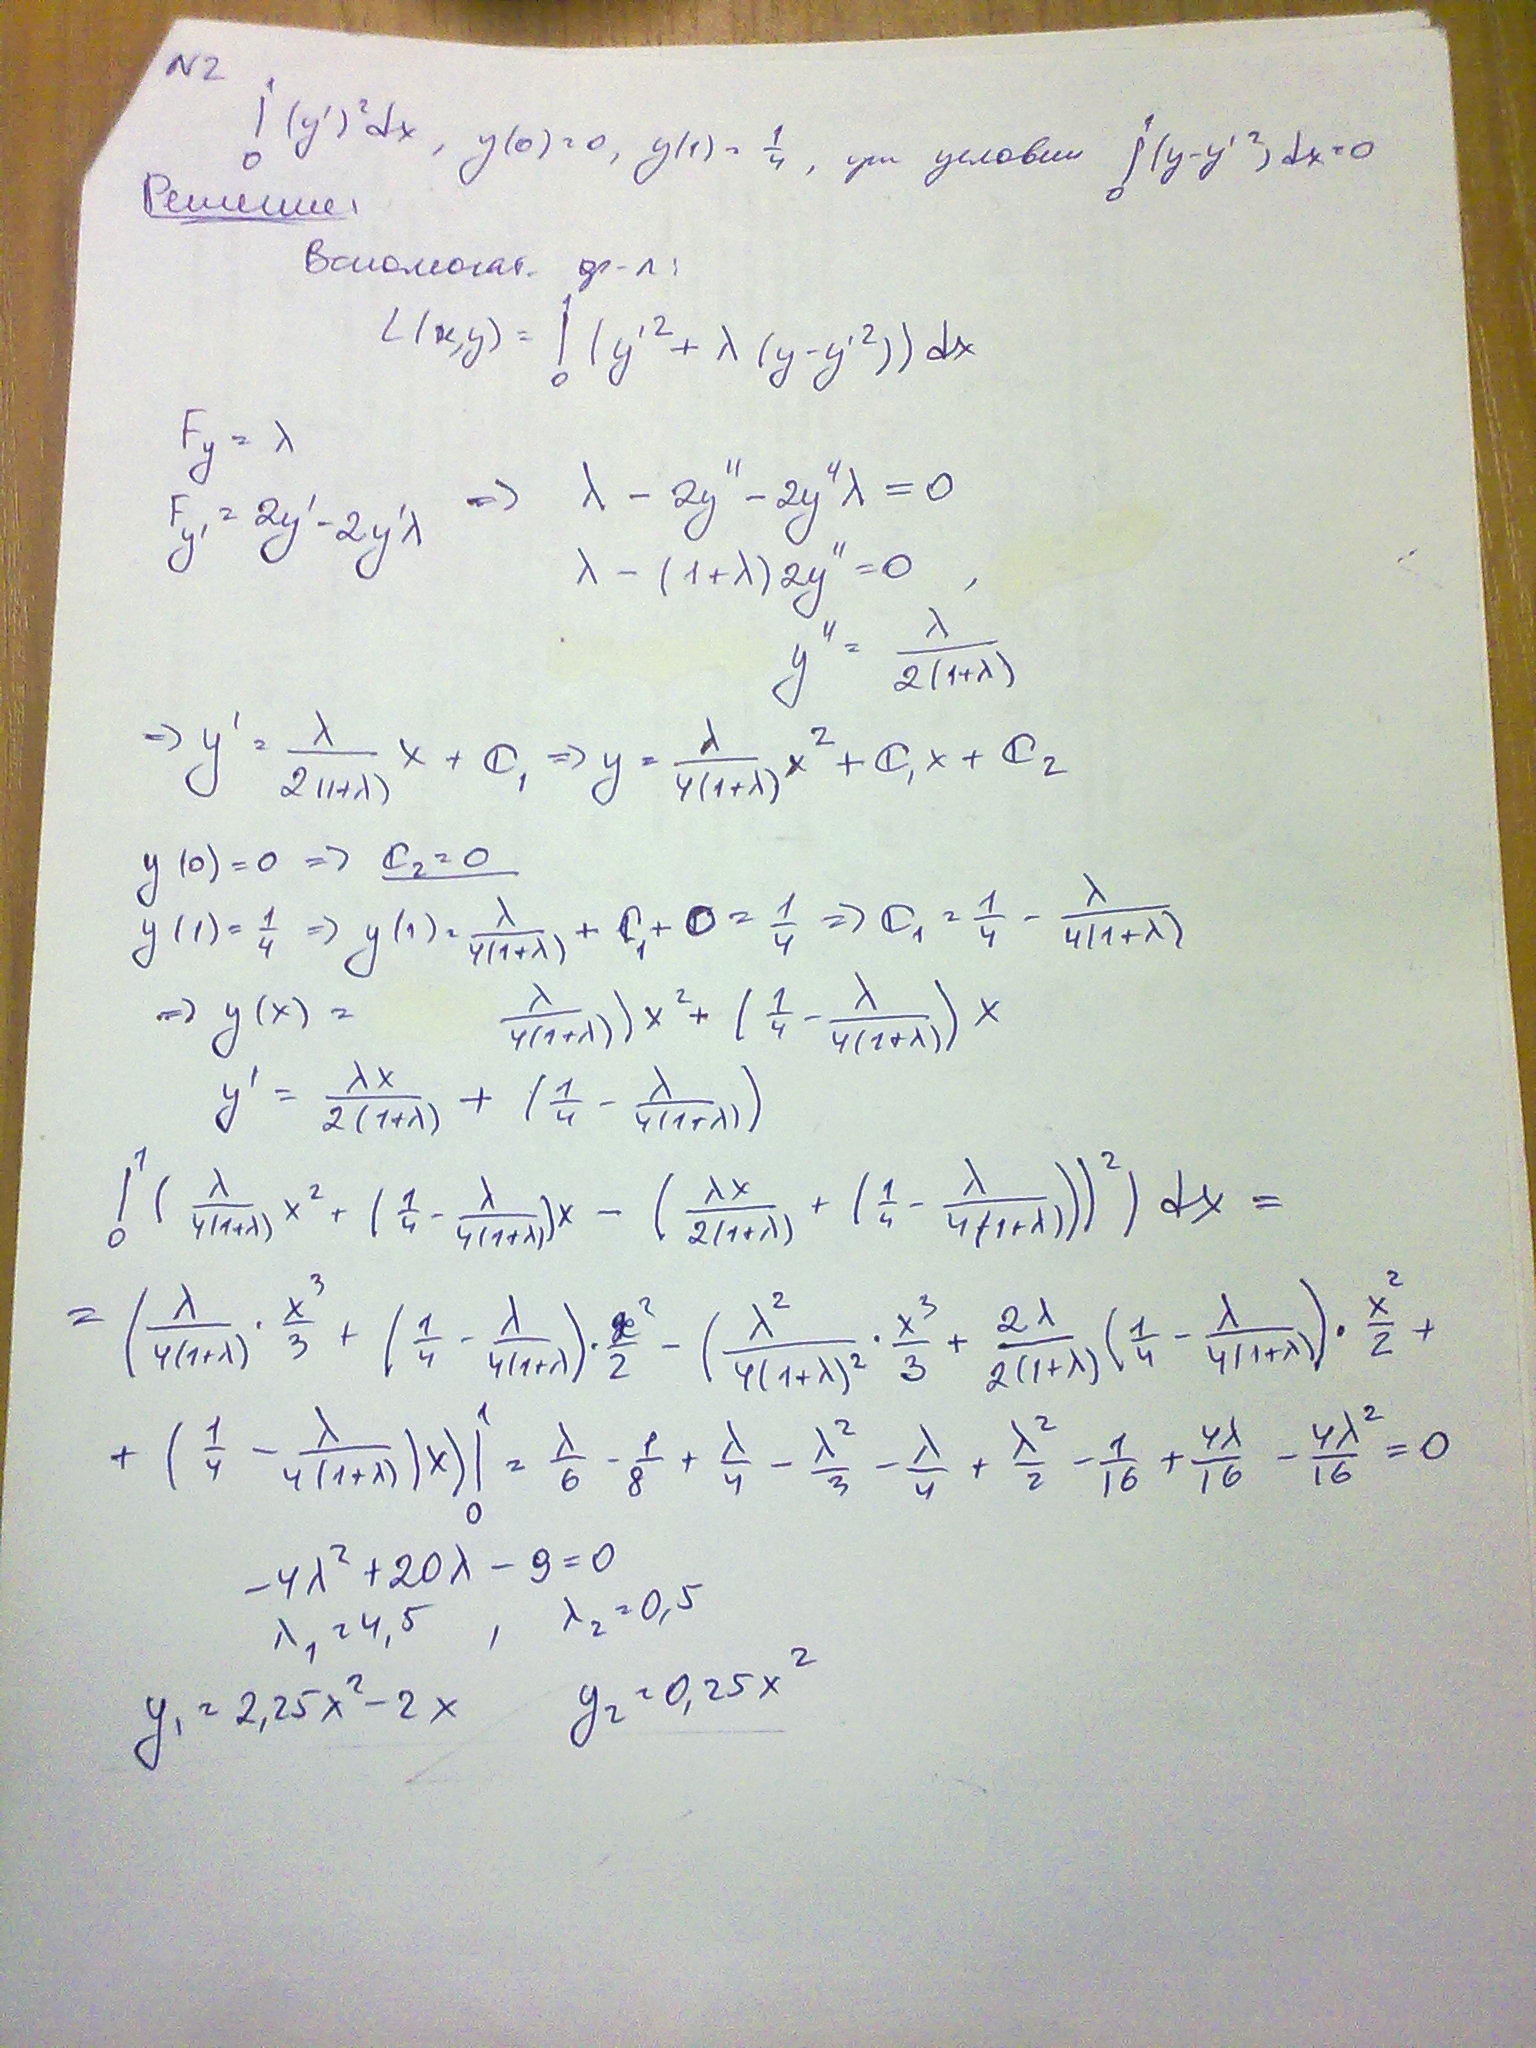 N2
∫₀¹ (y')² dx, y(0)=0, y(1)=1/4, при условии ∫₀¹ (y-y'²) dx=0
Решение:
Вспомогат. ф-л:
L(x,y) = ∫₀¹ (y'² + λ(y-y'²)) dx
F_y = λ
F_y' = 2y' - 2y'λ => λ - 2y'' - 2y''λ = 0
λ - (1+λ)2y'' = 0,
y'' = λ/(2(1+λ))
=> y' = λ/(2(1+λ)) x + C₁ => y = λ/(4(1+λ)) x² + C₁x + C₂
y(0)=0 => C₂=0
y(1)=1/4 => y(1) = λ/(4(1+λ)) + C₁ + 0 = 1/4 => C₁ = 1/4 - λ/(4(1+λ))
=> y(x) = λ/(4(1+λ)))x² + (1/4 - λ/(4(1+λ))) x
y' = λx/(2(1+λ)) + (1/4 - λ/(4(1+λ)))
∫₀¹ (λ/(4(1+λ)) x² + (1/4 - λ/(4(1+λ)))x - (λx/(2(1+λ)) + (1/4 - λ/(4(1+λ))))²) dx =
= (λ/(4(1+λ)) · x³/3 + (1/4 - λ/(4(1+λ))) · x²/2 - (λ²/(4(1+λ)²) · x³/3 + 2λ/(2(1+λ)) (1/4 - λ/(4(1+λ))) · x²/2 +
+ (1/4 - λ/(4(1+λ)))x)|₀¹ = λ/6 - 1/8 + λ/4 - λ²/3 - λ/4 + λ²/2 - 1/16 + 4λ/16 - 4λ²/16 = 0
-4λ² + 20λ - 9 = 0
λ₁ = 4,5, λ₂ = 0,5
y₁ = 2,25x² - 2x y₂ = 0,25x²